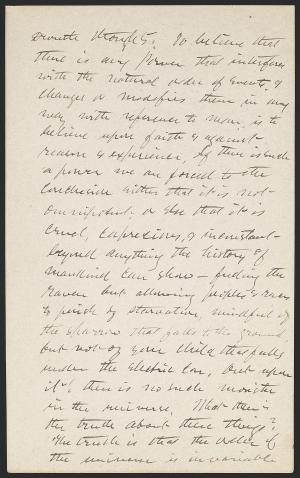 thoughts: To believe that
there is any Power that interferes
with the natural order of events, &
changes or modifies them in any
way with reference to man, is to
believe upon faith & against
reason & experience. If there is such
a power we are forced to the
conclusion either that it is not
omnipotent, or else that it is
cruel, capricious, & inconstant
beyond anything the history of
mankind can show — feeding the
raven but allowing peoples & races
to perish by starvation, mindful of
the sparrow that falls to the ground
but not of your child that falls
under the electric car. Out upon
it! there is no such monster
in the universe. What then is
the truth about these things?
The truth is that the order of
the universe is invariable